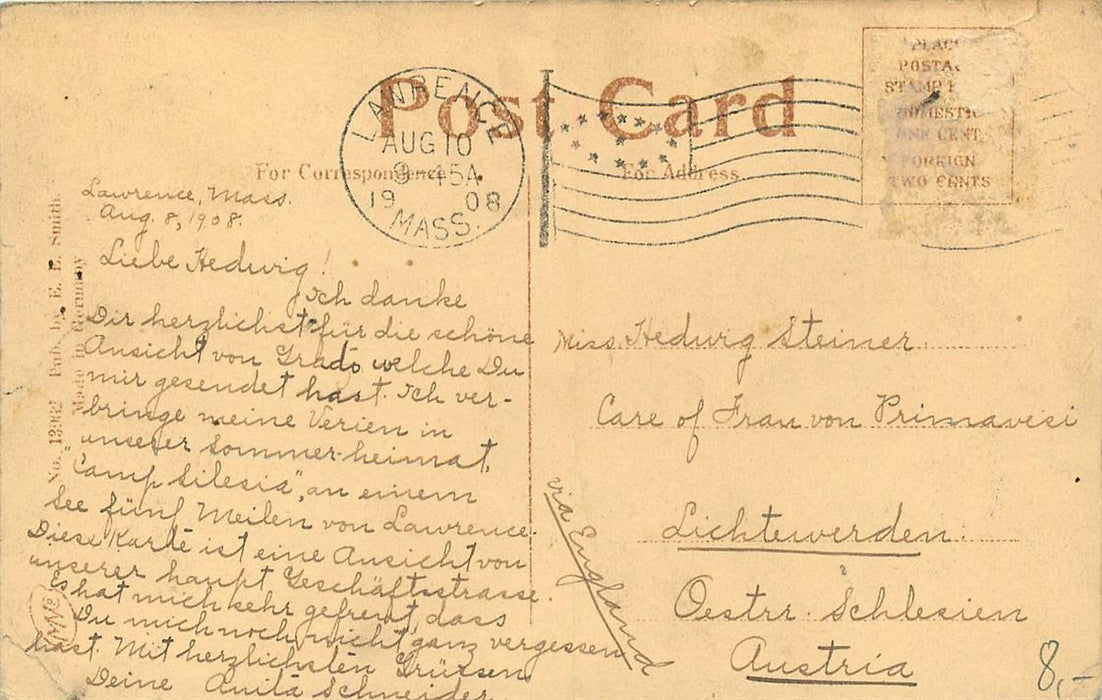 Post Card
For Correspondence.
For Address.
LAWRENCE
AUG 10
9 - 45 A
19 08
MASS.
PLACE
POSTA
STAMP
DOMESTIC
ONE CENT
FOREIGN
TWO CENTS
No. 13962 Pub. by E. L. Smith
Made in Germany
Lawrence, Mass.
Aug. 8, 1908.
Liebe Hedwig!
Ich danke
Dir herzlichst für die schöne
Ansicht von Grado welche Du
mir gesendet hast. Ich ver-
bringe meine Verien in
unserer Sommer-heimat,
"Camp Silesia", an einem
See fünf Meilen von Lawrence.
Diese Karte ist eine Ansicht von
unserer haupt Geschäftsstrasse.
Es hat mich sehr gefreut, dass
Du mich noch nicht ganz vergessen
hast. Mit herzlichsten Grüssen
Deine Anita Schneider
Miss. Hedwig Steiner
Care of Frau von Primavesi
Lichtewerden.
Oestrr. Schlesien
Austria
via England
8,-